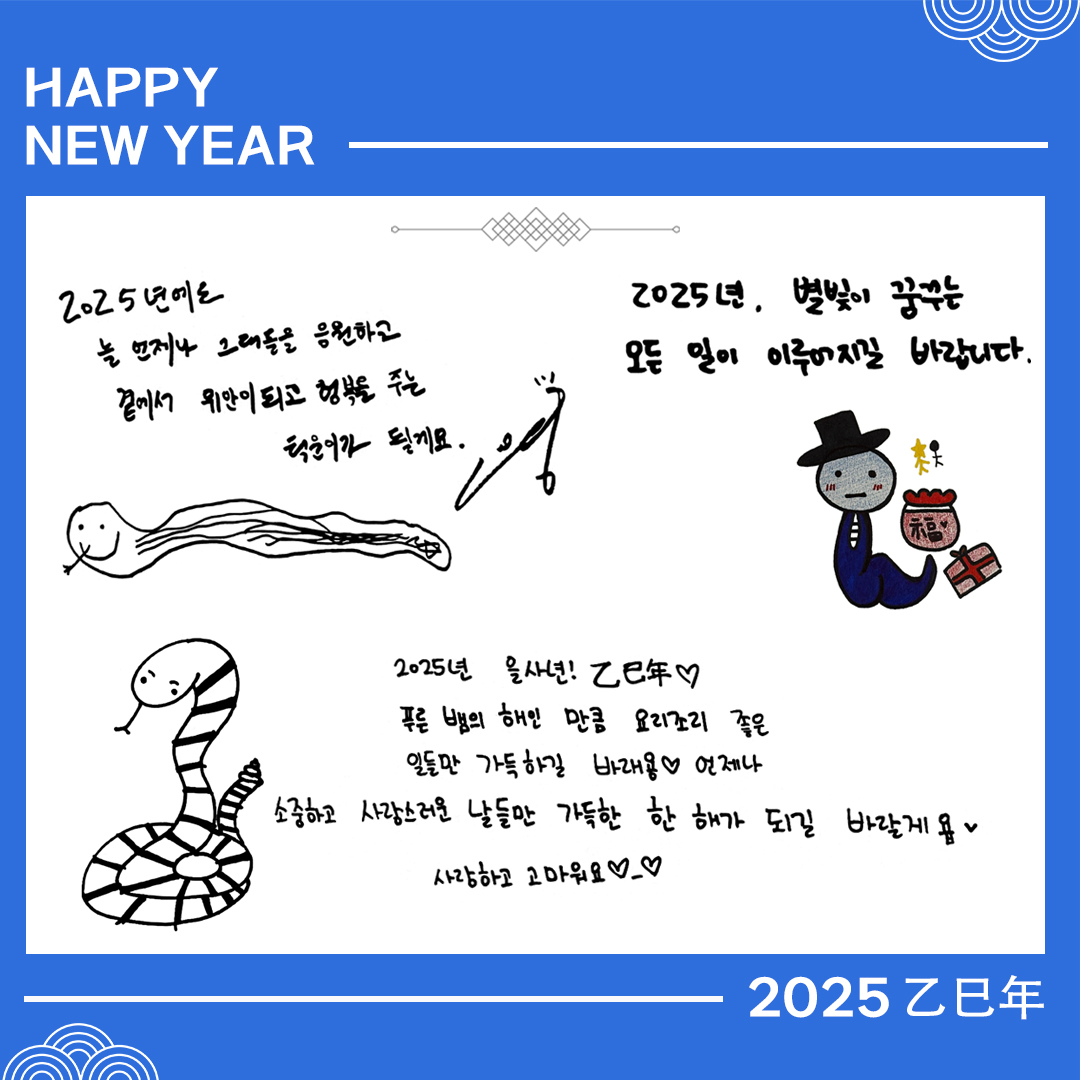 HAPPY
NEW YEAR
2025년에도
늘 언제나 그대들을 응원하고
곁에서 위안이 되고 행복을 주는
택운이가 될게요.
2025년, 별빛이 꿈꾸는
모든 일이 이루어지길 바랍니다.
福
2025년 을사년! 乙巳年♡
푸른 뱀의 해인 만큼 요리조리 좋은
일들만 가득하길 바래용♡ 언제나
소중하고 사랑스러운 날들만 가득한 한 해가 되길 바랄게욥
사랑하고 고마워요♡_♡
2025 乙巳年